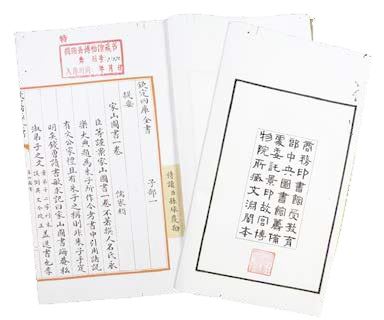 特
欽定四庫全書 子部一
提要
家山圖書一卷 儒家類
臣等謹案家山圖書一卷不著撰人名氏永
樂大典題為朱子所作今考書中引用諸說
有文公家禮且有朱子之稱則非朱子手定
明矣錢曾讀書敏求記曰家山圖書晦菴私
淑弟子之文
商務印書館受教育
部中央圖書館籌備
處委託景印故宮博
物院所藏文淵閣本